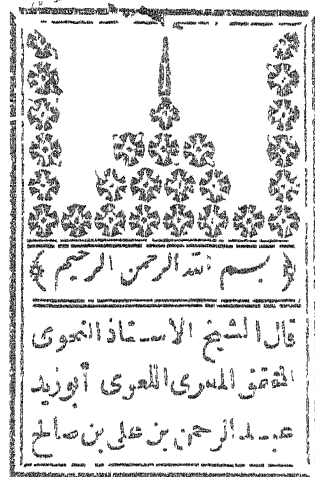 ﴿ بسم الله الرحمن الرحيم ﴾
قال الشيخ الاستاذ النحوى
المتقن اللغوى أبو زيد
عبد الرحمن بن على بن صالح